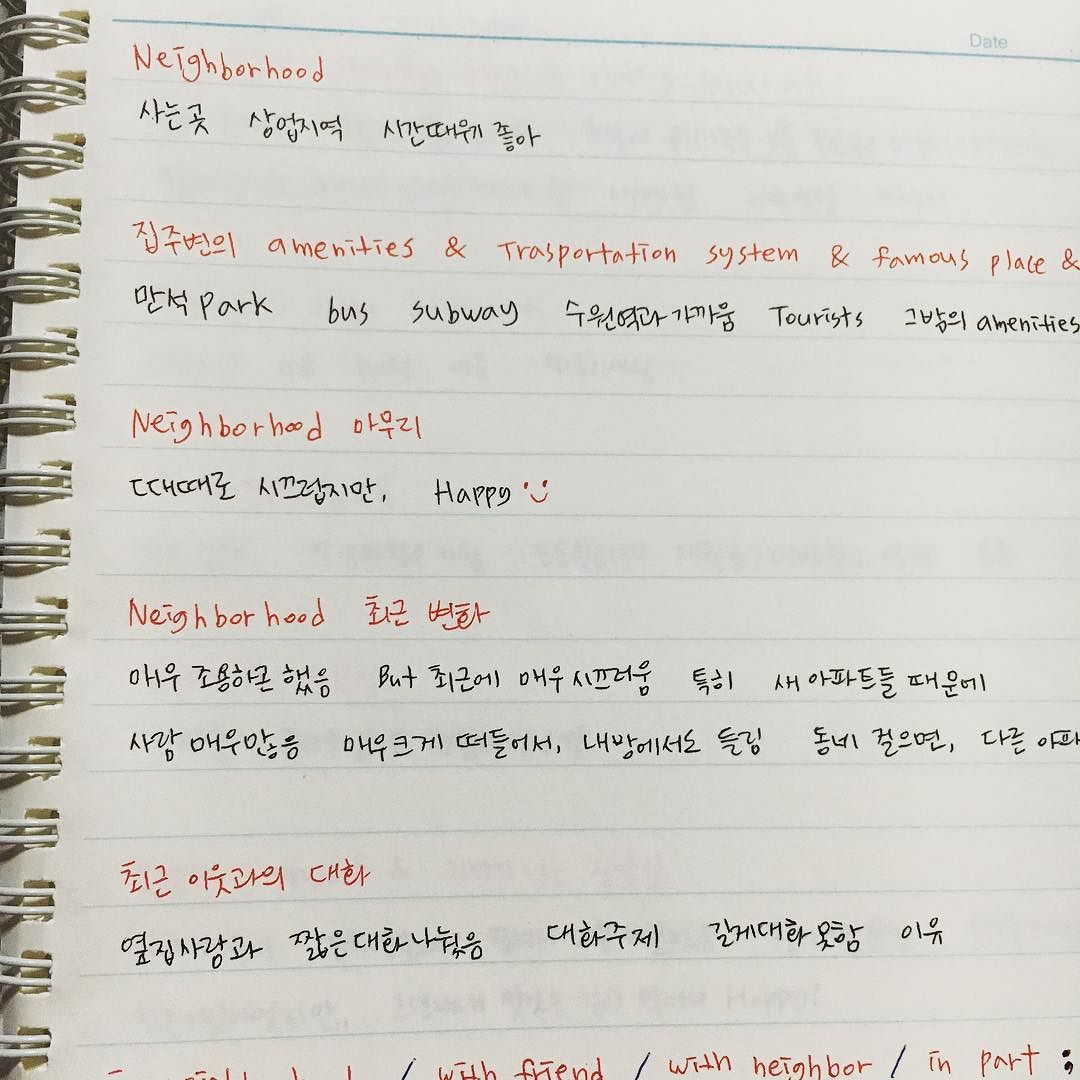 Date
Neighborhood
사는 곳 상업지역 시간때우기 좋아
집주변의 amenities & Trasportation system & famous place &
만석 park bus subway 수원역과 가까움 Tourists 그밖의 amenities
Neighborhood 마무리
때때로 시끄럽지만, Happy
Neighborhood 최근 변화
매우 조용하곤 했음 But 최근에 매우 시끄러움 특히 새 아파트들 때문에
사람 매우많음 매우크게 떠들어서, 내방에서도 들림 동네 걸으면, 다른 아파
최근 이웃과의 대화
옆집사람과 짧은대화나눴음 대화주제 길게대화 못함 이유
/ with friend / with neighbor / in part ;